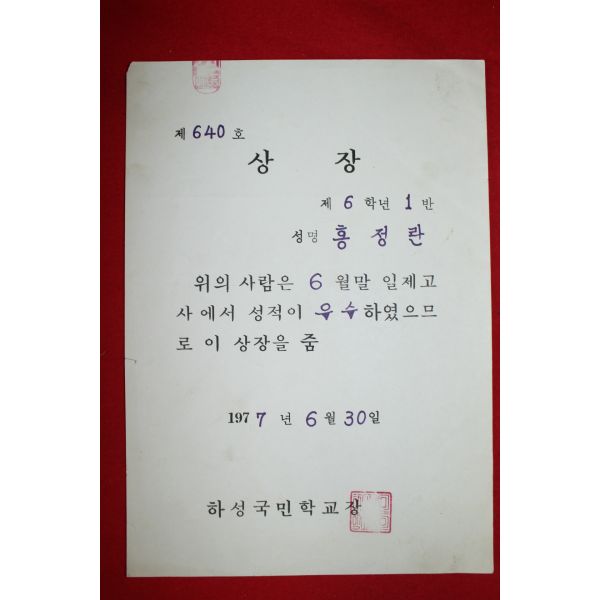 제 640 호
상 장
제 6 학년 1 반
성명 홍 정 란
위의 사람은 6 월말 일제고
사에서 성적이 우수하였으므
로 이 상장을 줌
1977 년 6 월 30 일
하성국민학교장